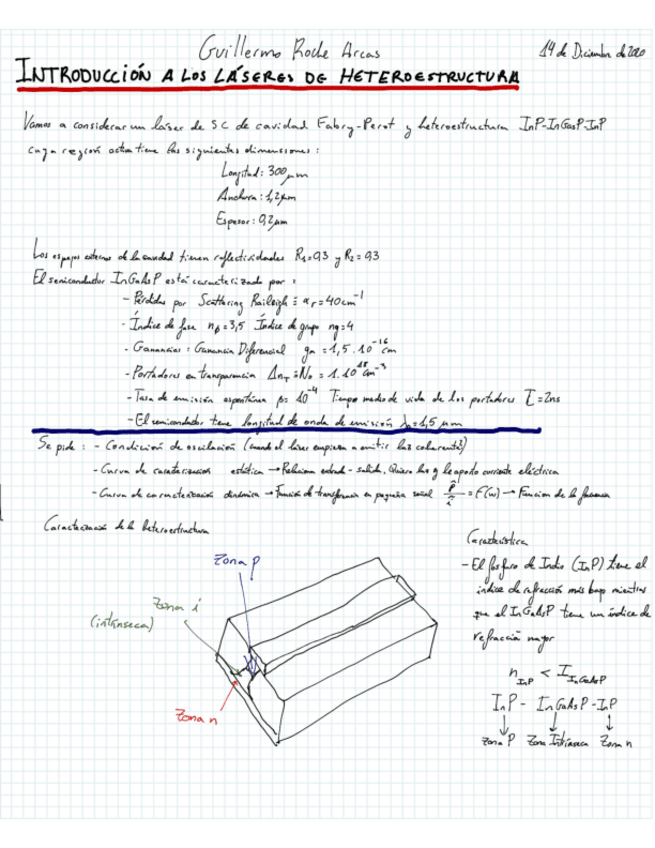 Guillermo Roche Arcas
14 de Diciembre de 2020
INTRODUCCIÓN A LOS LÁSERES DE HETEROESTRUCTURA
Vamos a considerar un láser de SC de cavidad Fabry-Perot y heteroestructura InP-InGasP-InP
cuya región activa tiene las siguientes dimensiones:
Longitud: 300 μm
Anchura: 1,2 μm
Espesor: 0,2 μm
Los espejos externos de la cavidad tienen reflectividades R₁=0,3 y R₂=0,3
El semiconductor InGaAsP está caracterizado por:
- Pérdidas por Scattering Raileigh ≡ αr=40cm⁻¹
- Índice de fase np=3,5 Índice de grupo ng=4
- Ganancias: Ganancia Diferencial gn=1,5·10⁻¹⁶ cm
- Portadores en transparencia ΔnT≡N₀=1·10¹⁸ cm⁻³
- Tasa de emisión espontánea β=10⁻⁴ Tiempo medio de vida de los portadores τ=2ns
- El semiconductor tiene longitud de onda de emisión λ₀=1,5 μm
Se pide: - Condición de oscilación (cuando el láser empieza a emitir luz coherente)
- Curva de caracterización estática → Relaciona entrada-salida. Quiero luz y le aporto corriente eléctrica
- Curva de caracterización dinámica → Función de transferencia en pequeña señal p̂/î = F(ω) → Función de la frecuencia
Caracterización de la heteroestructura
Característica
- El fosfuro de Indio (InP) tiene el
índice de refracción más bajo mientras
que el InGaAsP tiene un índice de
refracción mayor
n InP < I InGaAsP
InP - InGaAsP - InP
↓ ↓ ↓
Zona P Zona Intrínseca Zona n
Zona p
Zona i
(intrínseca)
Zona n